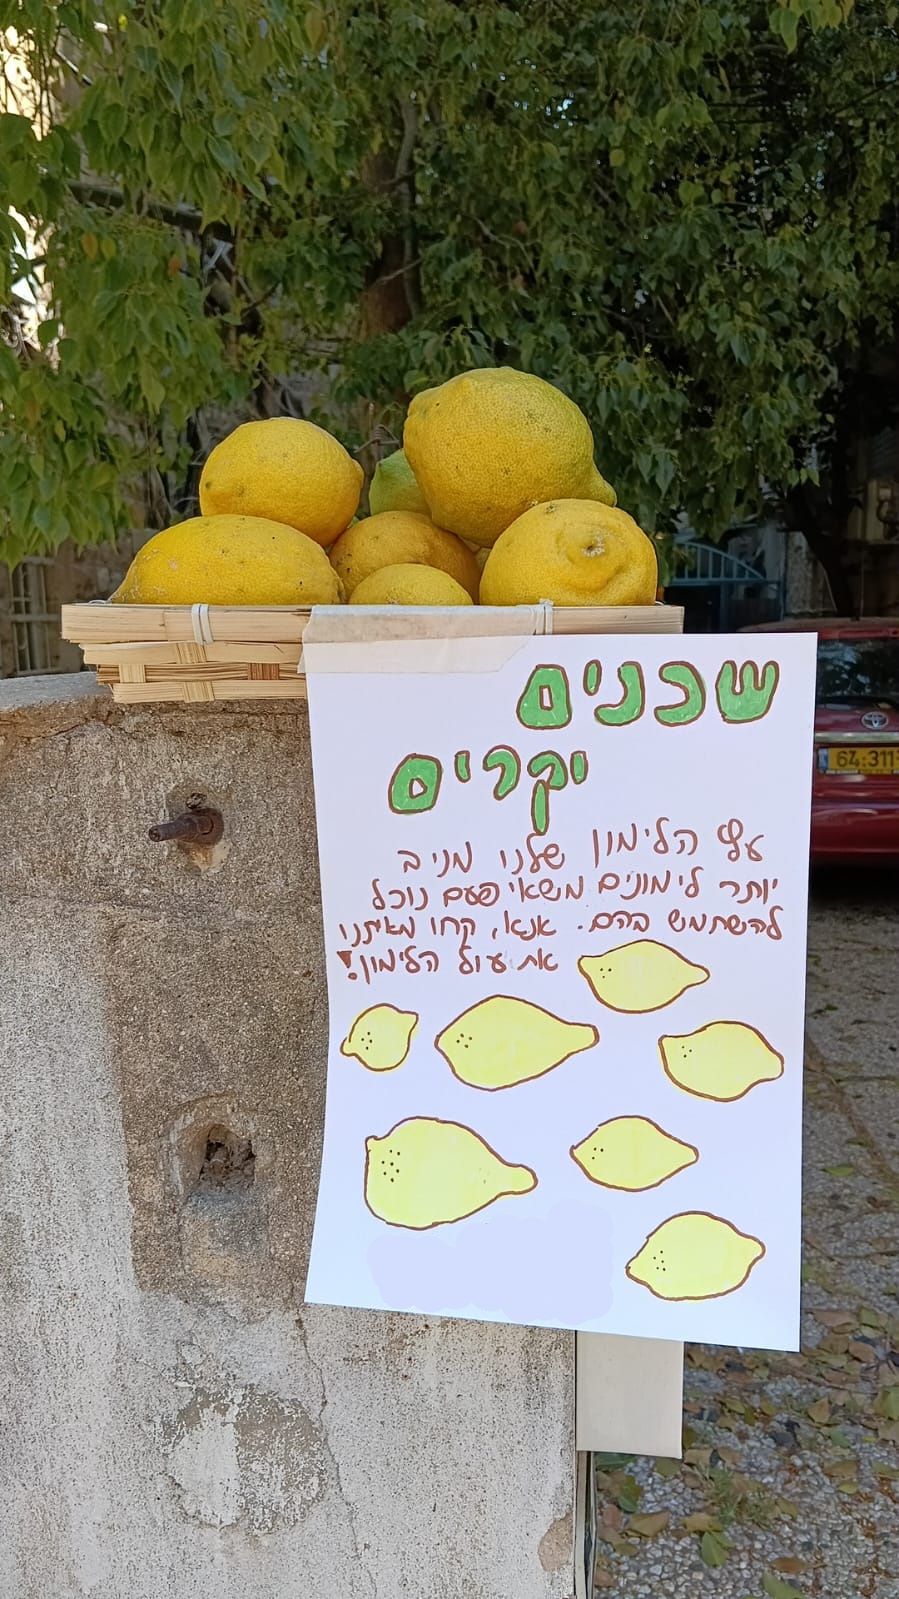 שכנים
יקרים
עץ הלימון שלנו מניב
יותר לימונים משאי פעם נוכל
להשתמש בהם. אנא, קחו מאיתנו
את עול הלימון!
64·311